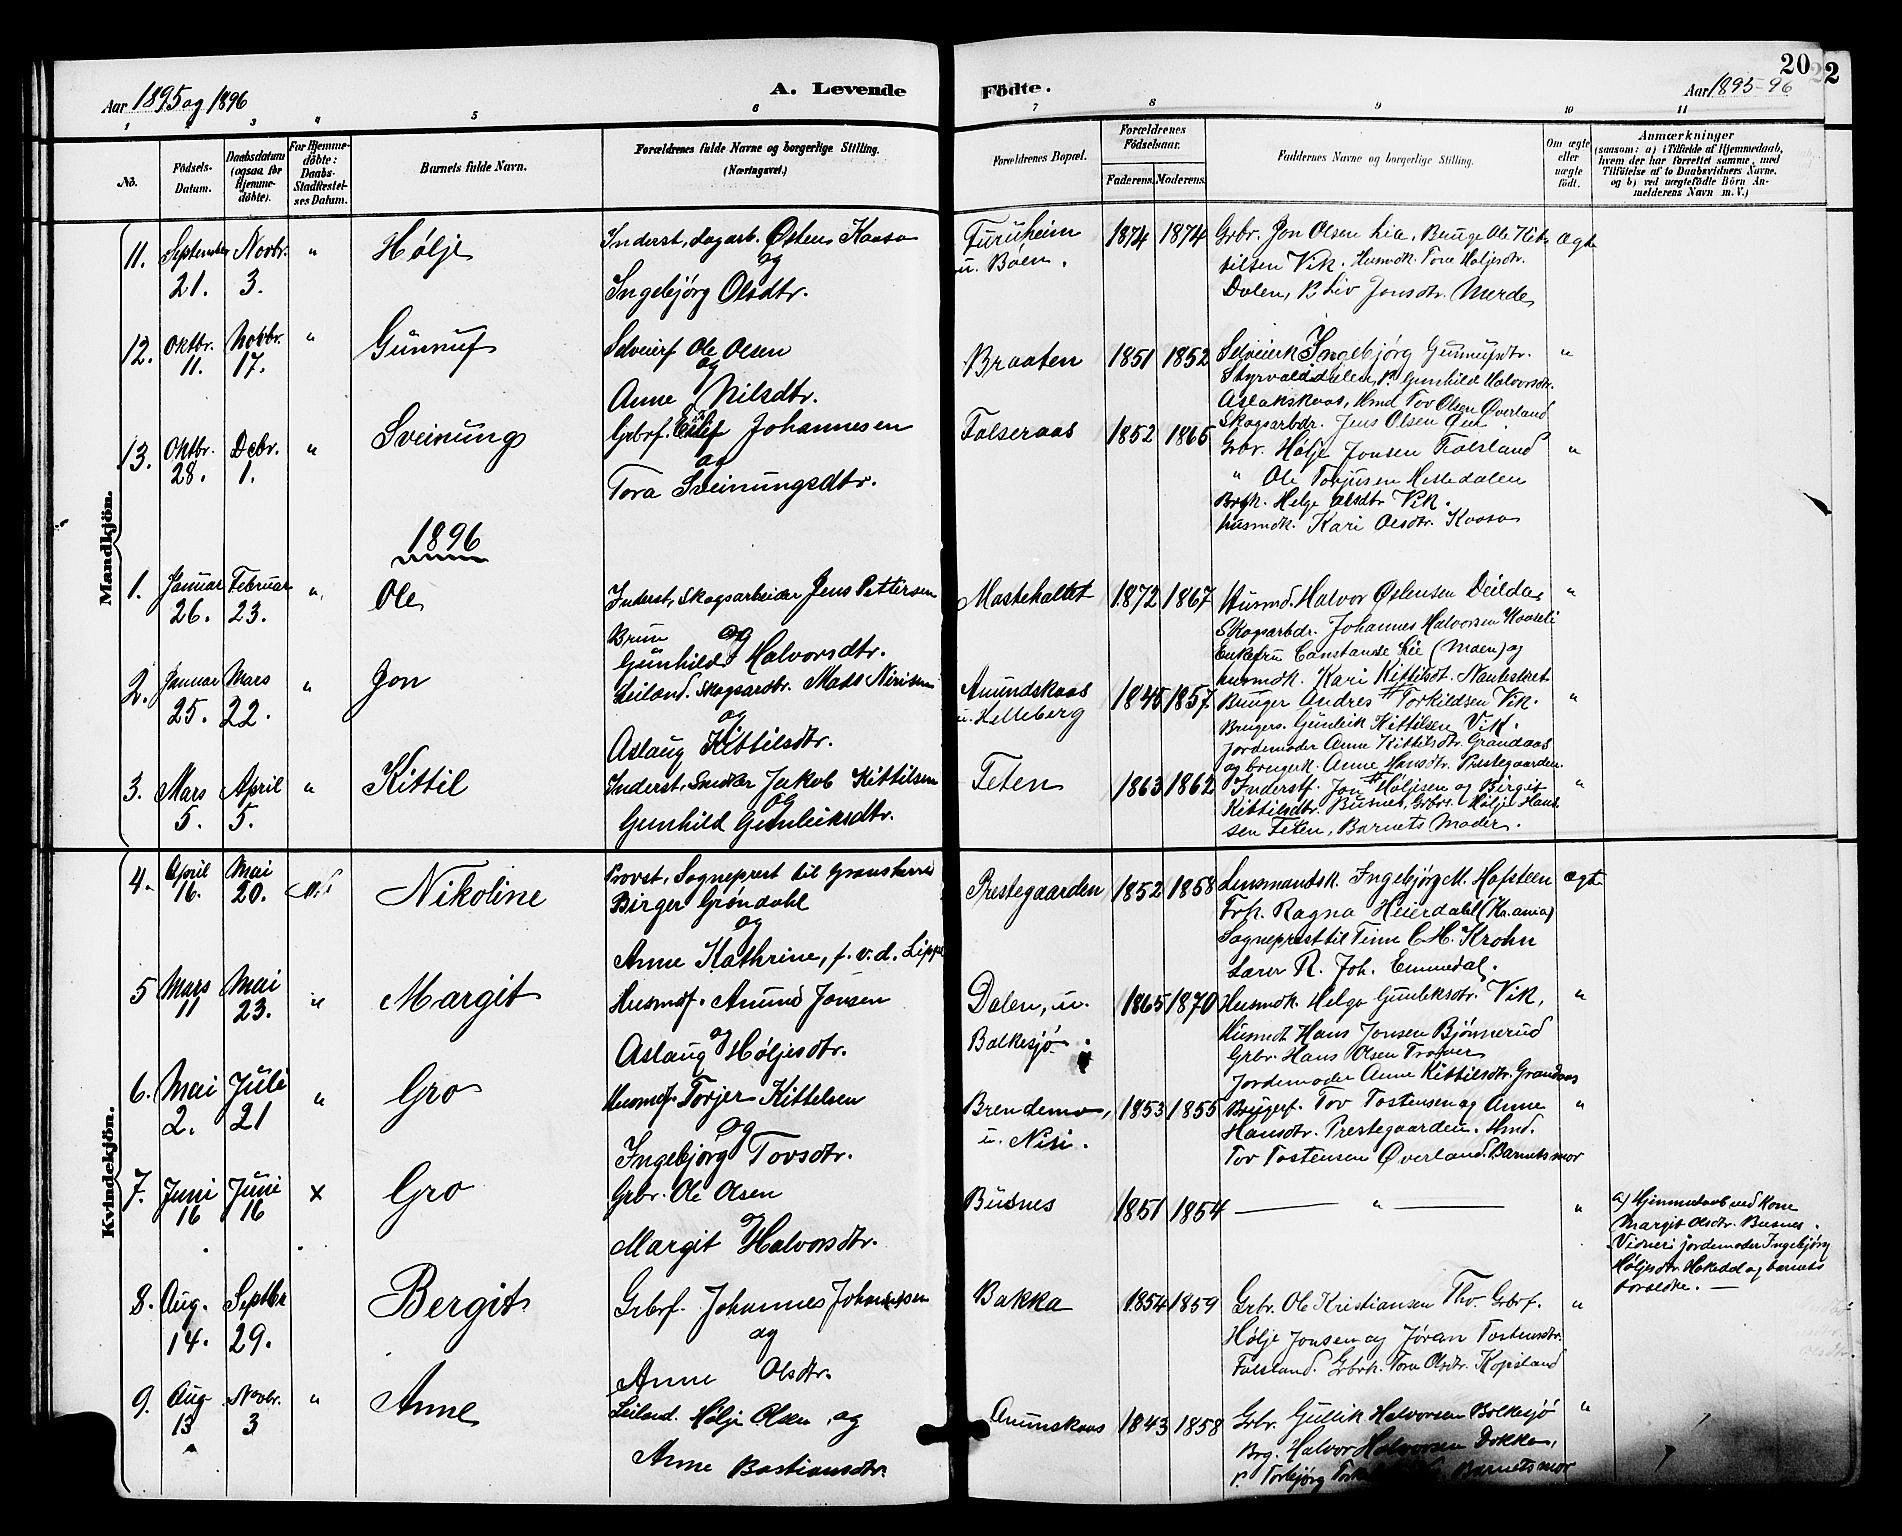 Aar 1895 og 1896
A. Levende
Födte.
Aar 1895-96
20
22
1 2 3 4 5 6 7 8 9 10 11
No.
Födsels-Datum.
Daabsdatum (ogsaa for Hjemmedöbte).
For Hjemmedöbte: Daabs-Stadfestelses Datum.
Barnets fulde Navn.
Forældrenes fulde Navne og borgerlige Stilling.
(Næringsvei.)
Forældrenes Bopæl.
Forældrenes Födselsaar.
Faderens. Moderens.
Faddernes Navne og borgerlige Stilling.
Om ægte eller uægte födt.
Anmærkninger
(saasom: a) i Tilfælde af Hjemmedaab, hvem der har forrettet samme, med Tilföielse af to Daabsvidners Navne, og b) ved uægtefödte Börn Anmelderens Navn m. V.)
Mandkjön.
11. September 21. Novbr. 3. " Hølje
Inderst, dagarb. Østen Kaasa
og
Ingebjørg Olsdtr.
Furuheim u. Bøen. 1874 1874
Grbr. Jon Olsen Lia, Bruge Ole Kit-
tilsen Vik. Husmdk. Tore Høljesdtr.
Dalen, P. Liv Jonsdtr. Merde
ægte
12. Oktbr. 11. Novbr. 17. " Gunnuf
Selveierf Ole Olsen
og
Anne Nilsdtr.
Braaten 1851 1852
Selveierk Ingebjørg Gunnufsdtr.
Styrvoldsdalen, P. Gunhild Halvorsdtr.
Aslakskaas, Hmd Tov Olsen Øverland
Skogsarbdr. Jens Olsen
"
13. Oktbr. 28. Debr. 1. " Sveinung
Grbrf. Eilif Johannesen
og
Tora Sveinungsdtr.
Folseraas 1852 1865
Grbr. Hølje Jonsen Folsland
" Ole Torjusen Helledalen
Brgk. Helge Olsdtr Vik.
husmdk. Kari Olsdtr. Kaasa
"
1896
1. Januar 26. Februar 23. " Ole
Inderst, Skogsarbeider Jens Pettersen
Brun og
Gunhild Halvorsdtr.
Mastehaltet 1872 1867
Husmd. Halvor Østensen Deilda
Skogsarbdr. Johannes Halvorsen Kaaseli
Enkefru Constanse Lie (Moen) og
husmdk. Kari Kittilsdt.
"
2. Januar 25. Mars 22. " Jon
Leiland. Skogsardbr. Mads
og
Aslaug Kittilsdtr.
Amundskaas u. Helleberg 1845 1857
Bruger Andres Torkildsen Vik.
Brugers. Gunleik Kittilsen Vik.
Jordemoder Anne Kittilsdtr. Grandaas
og brugerk. Anne Hansdtr. Prestegaarden
"
3. Mars 5. April 5. " Kittil
Inderst, Snidker Jakob Kittilsen
og
Gunhild Gunleiksdtr.
Teten 1863 1862
Inderstf. Jon Høljesen og Birgit
Kittilsdtr. Busnes, Grbrs. Hølje Han-
sen Teten, Barnets Moder.
"
Kvindekjön.
4. April 16. Mai 20. Nikoline
Provst, Sogneprest til Gransherred
Birger Grøndahl
og
Anne Kathrine, f. v. d. Lippe
Prestegaarden 1852 1858
Lensmandsk. Ingebjørg M. Hofsteen
Frk. Ragna Heierdahl (Kr.ania)
Sogneprest til Tinn C. H. Krohn
Lærer R. Joh. Emmedal.
ægte
5 Mars 11 Mai 23. " Margit
Husmdf. Amund Jonsen
og
Aslaug Høljesdtr.
Dalen, u. Bolkesjø. 1865 1870
Husmdk. Helga Gunleksdtr. Vik,
Husmdt Hans Jonsen Bjønnerud
Grbr. Hans Olsen Traaer
Jordemoder Anne Kittilsdtr. Grandaas
"
6. Mai 2. Juli 21 " Gro
Husmdf. Torjer Kittelsen
og
Ingebjørg Tovsdtr.
Brendemo, u. Nisi. 1853 1855
Brugerf. Tov Tostensen og Anne
Hansdtr. Prestegaarden. Hmd.
Tov Tostensen Øverland. Barnets mor
"
7. Juni 16 Juni 16 x Gro
Grbr. Ole Olsen
og
Margit Halvorsdtr.
Busnes 1851 1854 — " — "
a) Hjemmedaab ved Kone
Margit Olsdtr. Busnes.
Vidner: jordemoder Ingebjørg
Høljesdtr og barnets
forældre. —
8. Aug. 14. Septbr 29. Bergit
Grbrf. Johannes Johannesen
og
Anne Olsdtr.
Bakka 1854 1859
Grbr. Ole Kristiansen Tho. Grbrf.
Hølje Jonsen og Jøran Tostensdtr.
Folsland. Grbrk. Tora Olsdtr. Kopsland
"
9. Aug 13 Novbr. 3 " Anne
Leilænd. Hølje Olsen, og
Anne Bastiansdtr.
Amunskaas 1843 1858
Grbr. Gullik Halvorsen Bolkesjø
Brg. Halvor Halvorsen Dokka,
P. Torbjørg Barnets mor
"